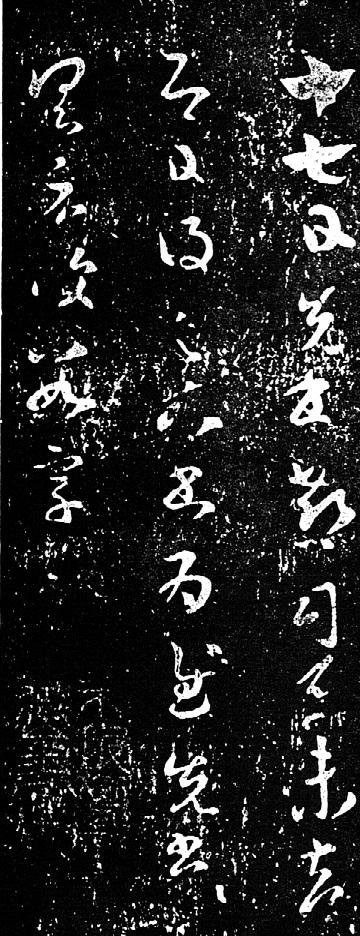 十七日先書郗司馬未去
即日得足下書為慰先書
以具示復數字